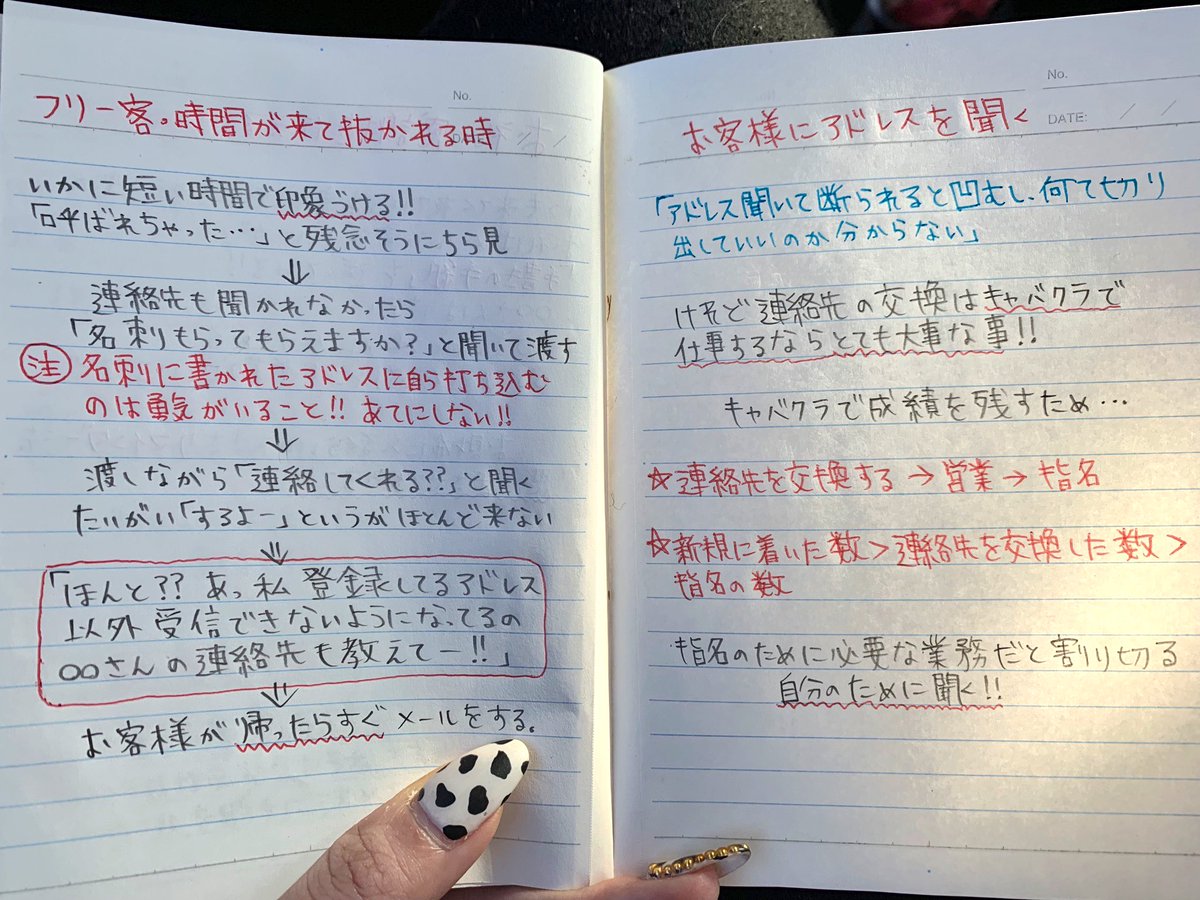 No.
フリー客。時間が来て抜かれる時
いかに短い時間で印象づける!!
「呼ばれちゃった…」と残念そうにちら見
⇓
連絡先も聞かれなかったら
「名刺もらってもらえますか?」と聞いて渡す
注 名刺に書かれたアドレスに自ら打ち込む
のは勇気がいること!! あてにしない!!
⇓
渡しながら「連絡してくれる??」と聞く
たいがい「するよー」というがほとんど来ない
⇓
「ほんと?? あっ私 登録してるアドレス
以外 受信できないようになってるの
○○さんの連絡先も教えてー!!」
⇓
お客様が帰ったらすぐメールをする。
No.
DATE: / /
お客様にアドレスを聞く
「アドレス聞いて断られると凹むし、何て切り
出していいのか分からない」
けれど連絡先の交換はキャバクラで
仕事するならとても大事な事!!
キャバクラで成績を残すため…
☆連絡先を交換する→営業→指名
☆新規に着いた数>連絡先を交換した数>
指名の数
指名のために必要な業務だと割り切る
自分のために聞く!!